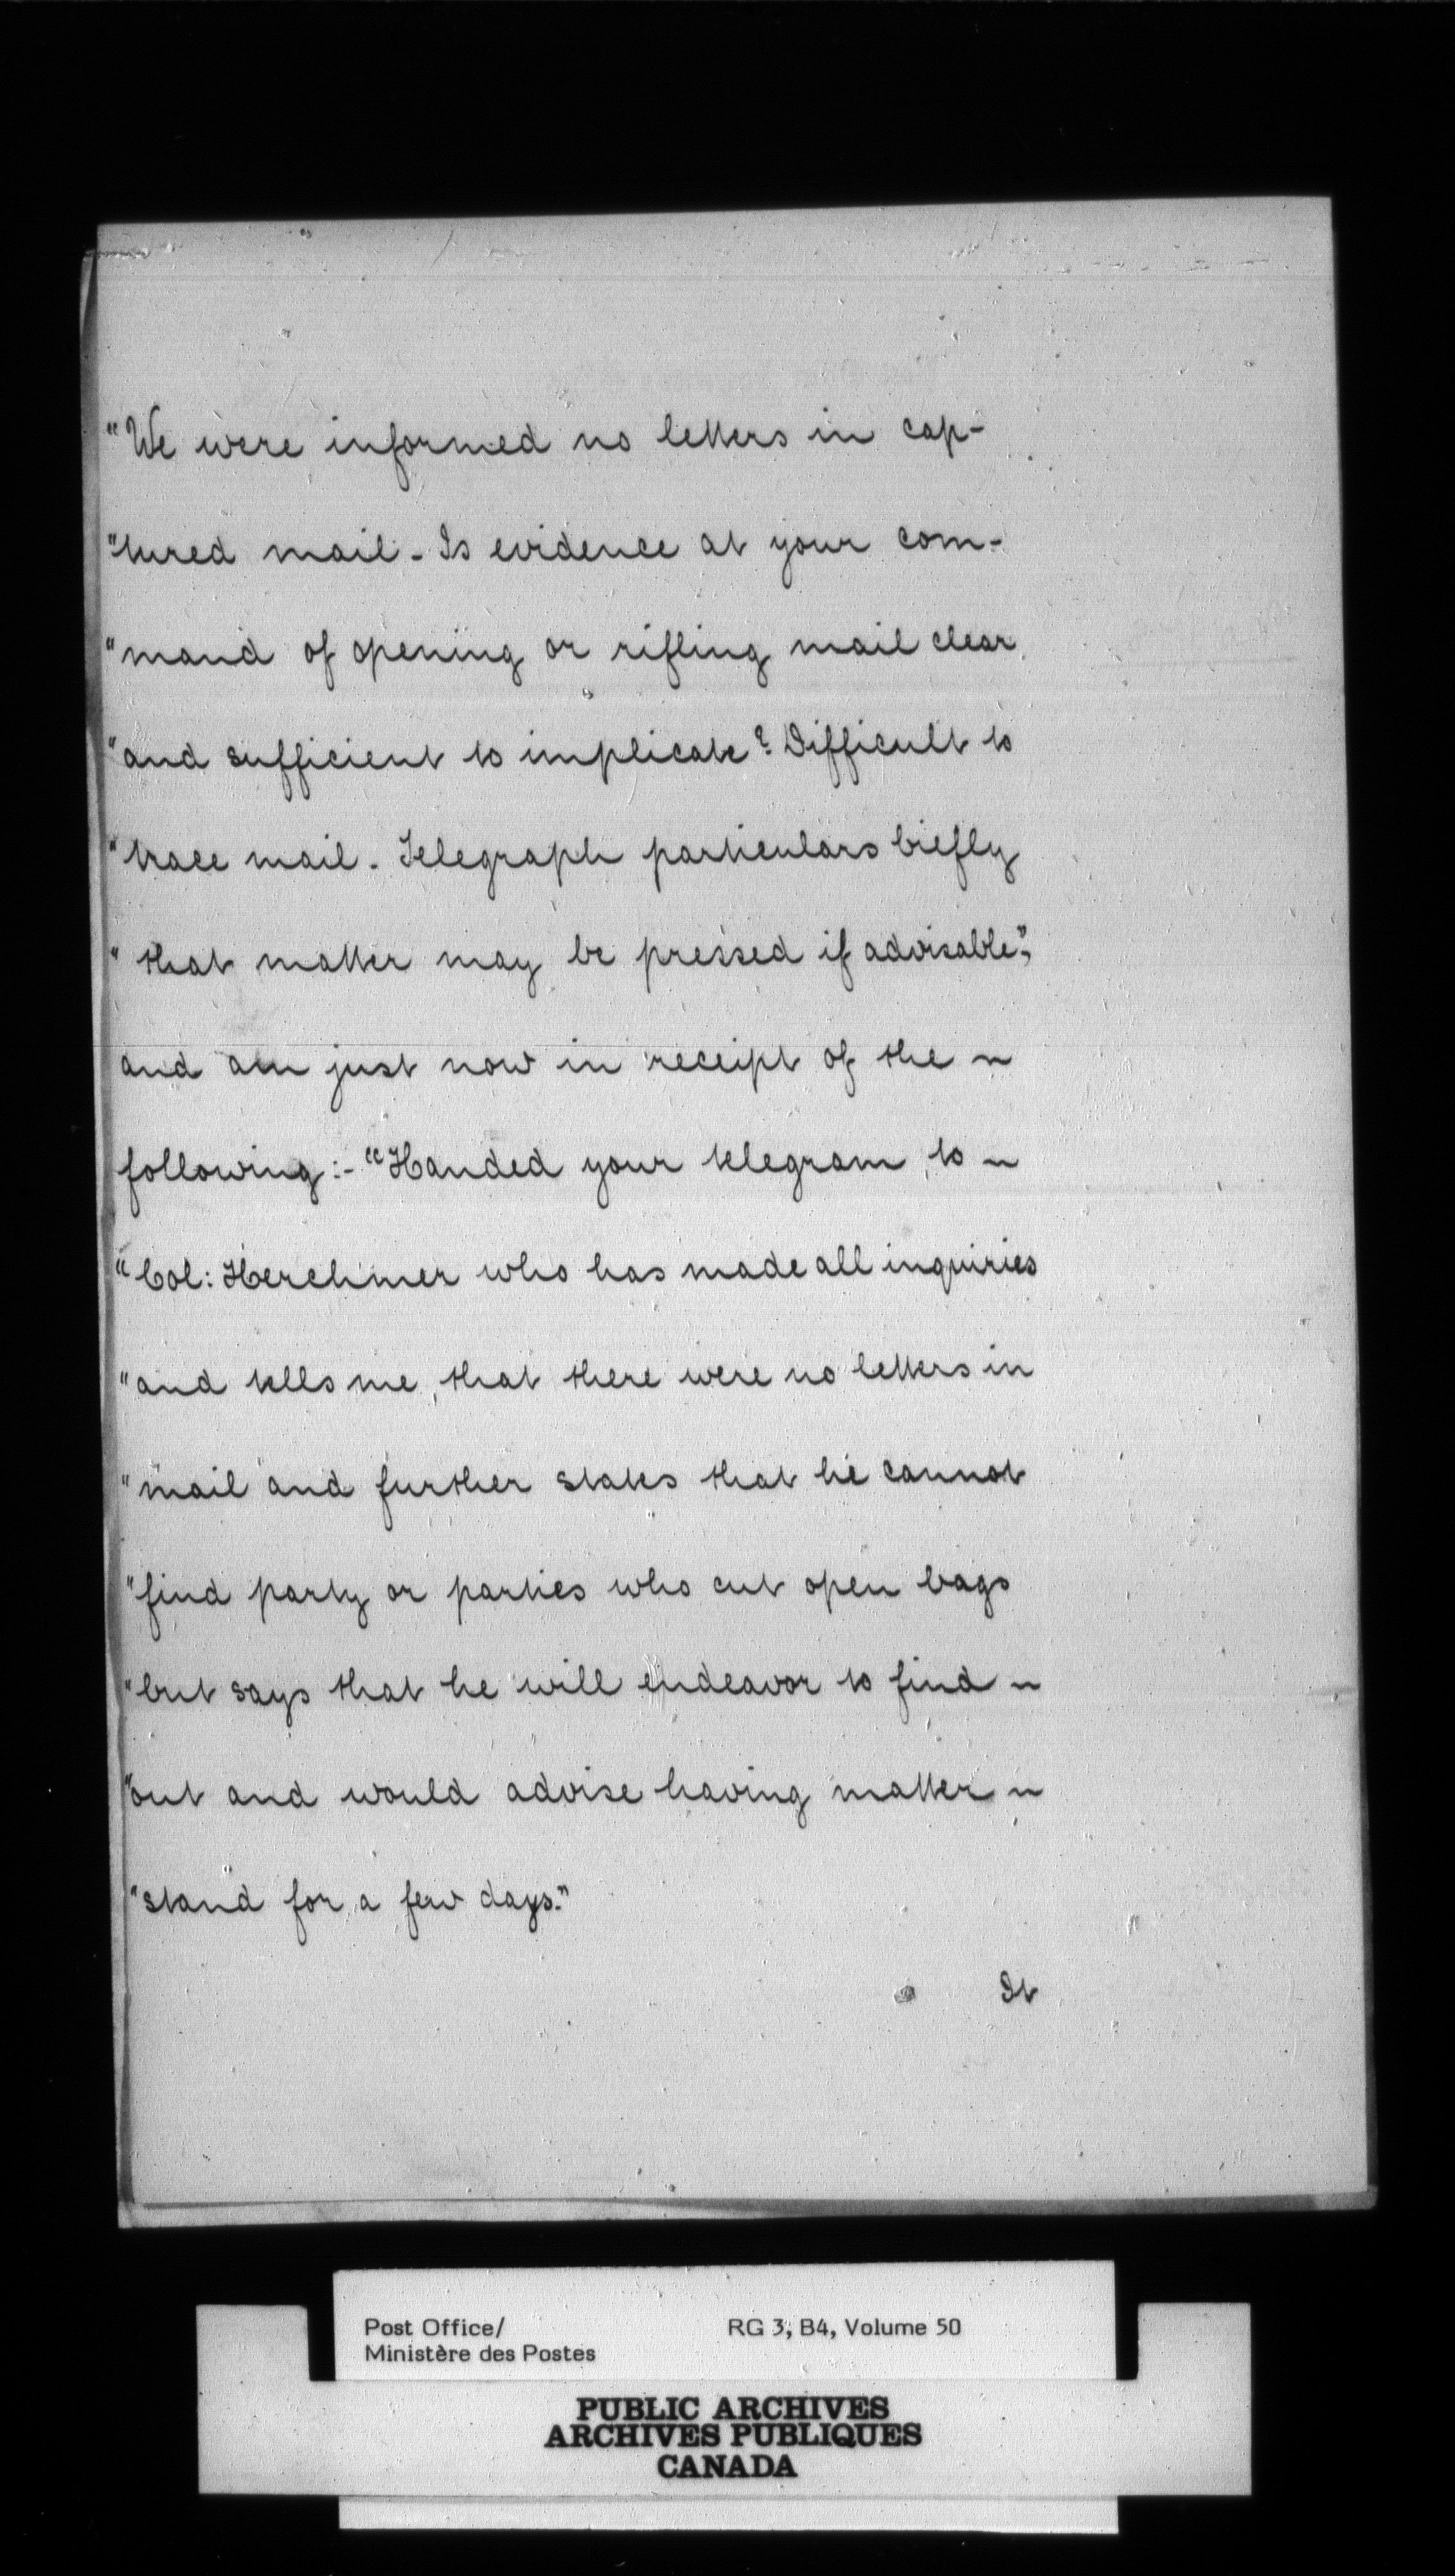 "We were informed no letters in cap-
"tured mail - Is evidence at your com-
"mand of opening or rifling mail clear
"and sufficient to implicate? Difficult to
"trace mail. Telegraph particulars briefly
"that matter may be pressed if advisable",
and am just now in receipt of the ~
following:- "Handed your telegram to ~
"Col: Herchmer who has made all inquiries
"and tells me, that there were no letters in
"mail and further states that he cannot
"find party or parties who cut open bags
"but says that he will endeavor to find ~
"out and would advise having matter ~
"stand for a few days."
It
Post Office/
Ministère des Postes
RG 3, B4, Volume 50
PUBLIC ARCHIVES
ARCHIVES PUBLIQUES
CANADA